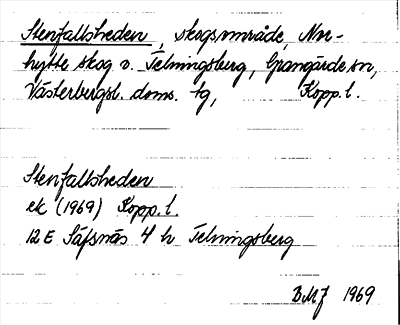 Stenfallsheden, skogsområde, Nor-
hytte skog v. Telningsberg, Grangärde sn,
Västerbergsl. doms. tg, Kopp. l.
Stenfallsheden
ek (1969) Kopp. l.
12E Säfsnäs 4 h Telningsberg
BMJ 1969